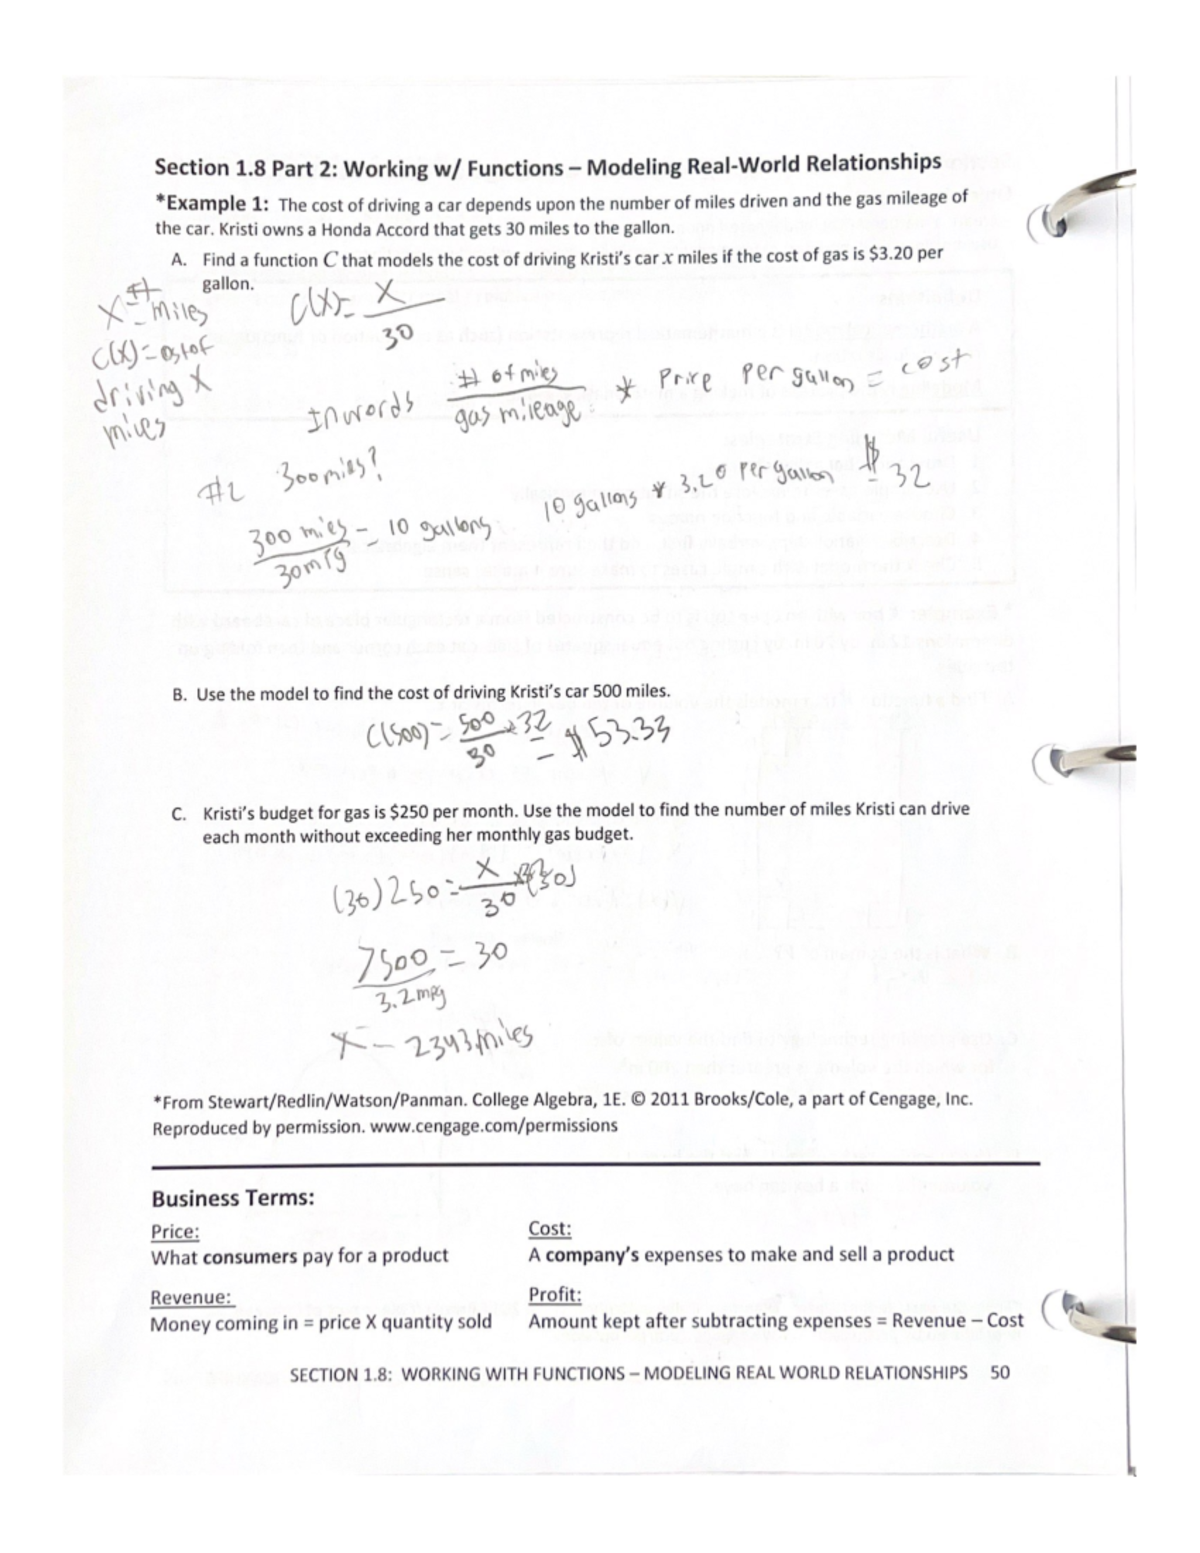 Section 1.8 Part 2: Working w/ Functions – Modeling Real-World Relationships
*Example 1: The cost of driving a car depends upon the number of miles driven and the gas mileage of
the car. Kristi owns a Honda Accord that gets 30 miles to the gallon.
A. Find a function C that models the cost of driving Kristi's car x miles if the cost of gas is $3.20 per
gallon.
X = # miles
C(X) = X / 30
C(X) = ostof
driving X
miles
In words # of miles / gas mileage * Price Per gallon = cost
#2 300 miles?
300 miles / 30 mpg = 10 gallons 10 gallons * 3.20 per gallon = $32
B. Use the model to find the cost of driving Kristi's car 500 miles.
C(500) = 500 / 30 * 32 = $53.33
C. Kristi's budget for gas is $250 per month. Use the model to find the number of miles Kristi can drive
each month without exceeding her monthly gas budget.
(30) 250 = X / 30 (30)
7500 / 3.2 mpg = 30
X = 2343 miles
*From Stewart/Redlin/Watson/Panman. College Algebra, 1E. © 2011 Brooks/Cole, a part of Cengage, Inc.
Reproduced by permission. www.cengage.com/permissions
Business Terms:
Price:
What consumers pay for a product
Cost:
A company's expenses to make and sell a product
Revenue:
Money coming in = price X quantity sold
Profit:
Amount kept after subtracting expenses = Revenue – Cost
SECTION 1.8: WORKING WITH FUNCTIONS – MODELING REAL WORLD RELATIONSHIPS 50